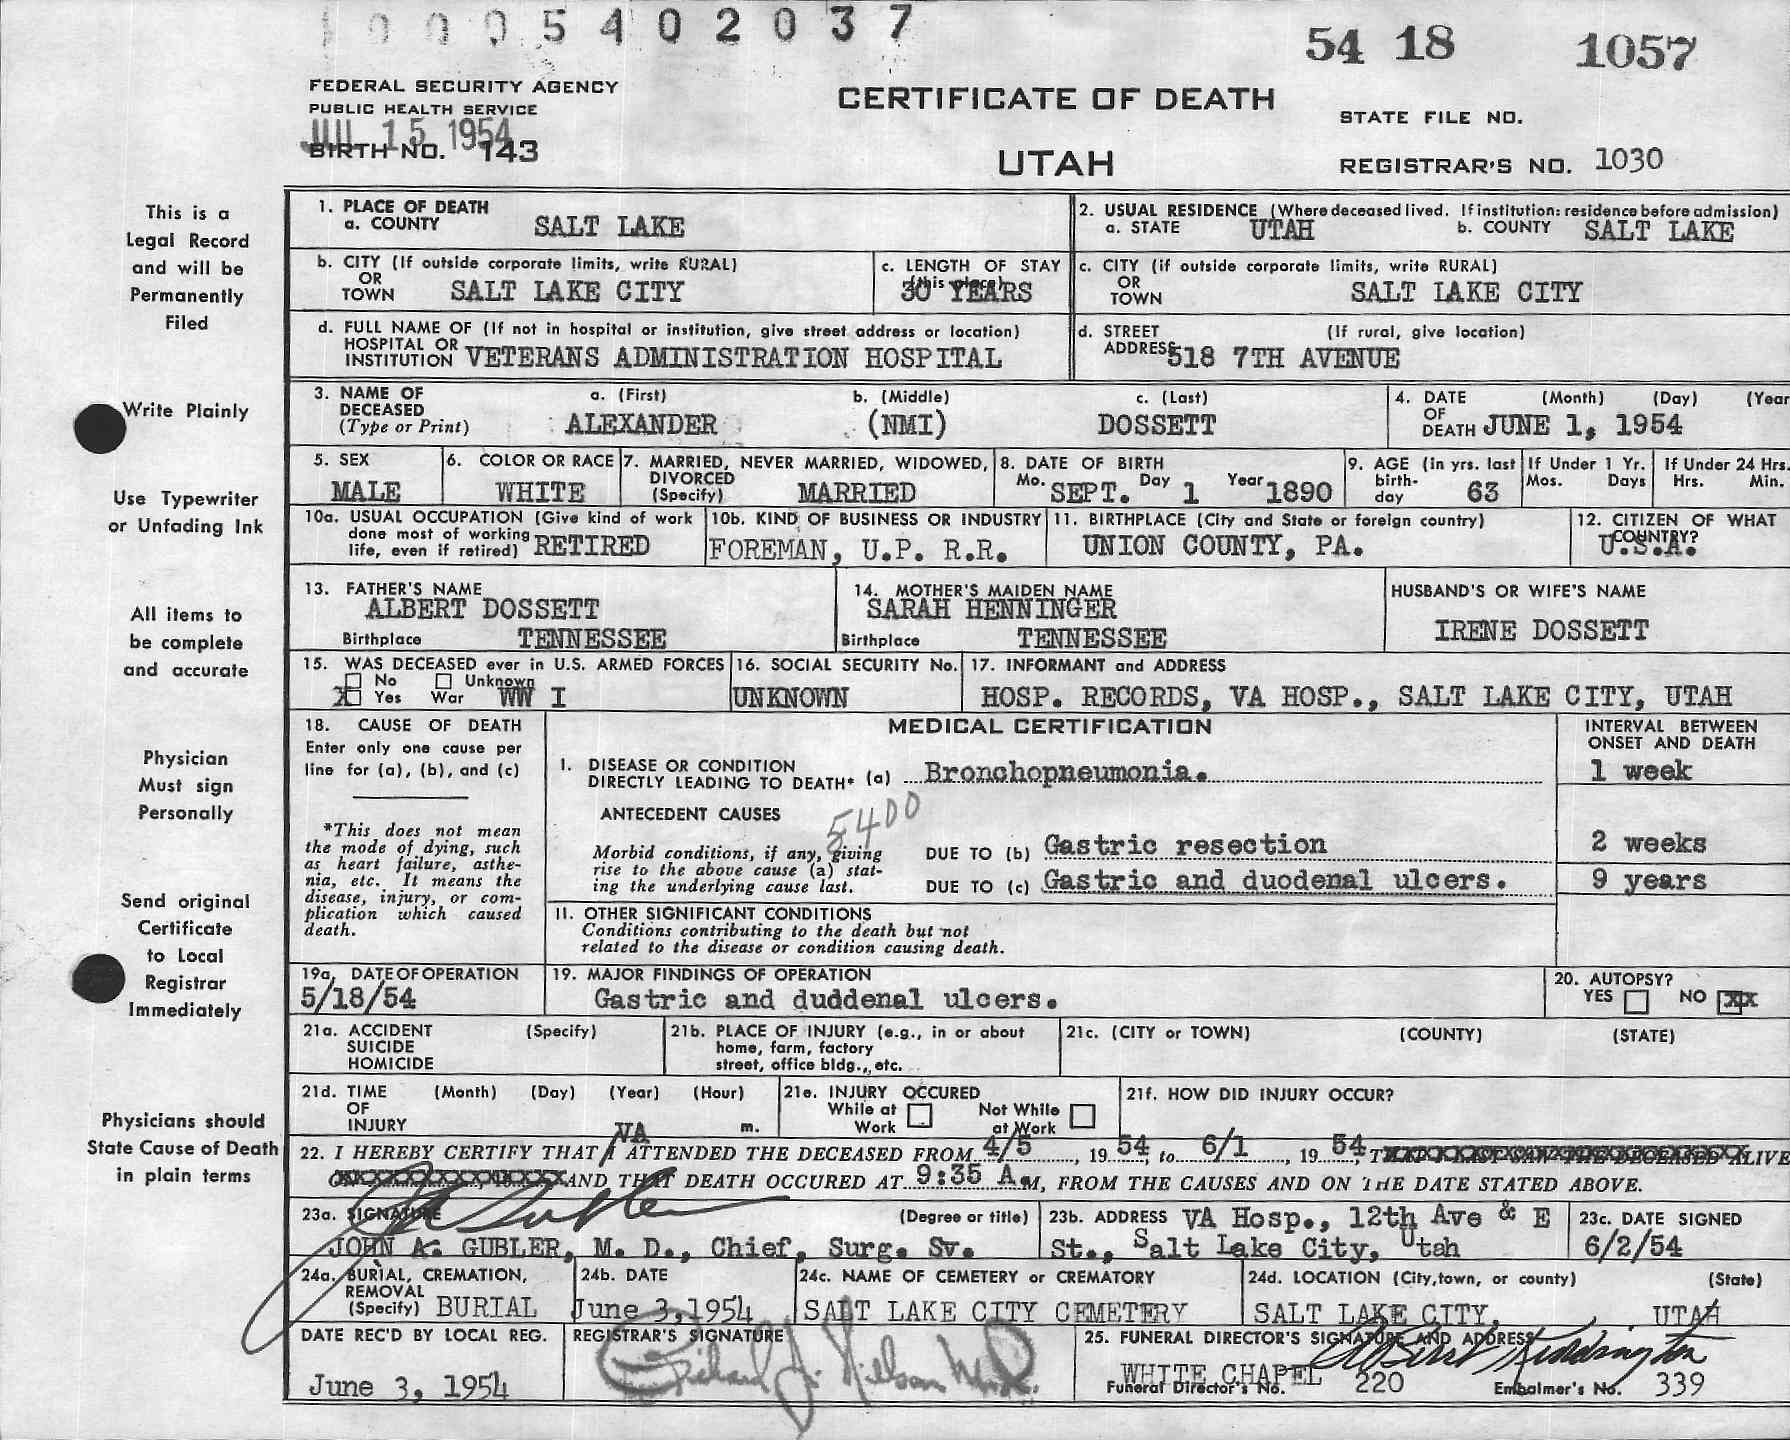 0005402037
54 18 1057
FEDERAL SECURITY AGENCY
PUBLIC HEALTH SERVICE
JUL 15 1954
BIRTH NO. 143
CERTIFICATE OF DEATH
UTAH
STATE FILE NO.
REGISTRAR'S NO. 1030
This is a
Legal Record
and will be
Permanently
Filed
Write Plainly
Use Typewriter
or Unfading Ink
All items to
be complete
and accurate
Physician
Must sign
Personally
Send original
Certificate
to Local
Registrar
Immediately
Physicians should
State Cause of Death
in plain terms
1. PLACE OF DEATH
a. COUNTY SALT LAKE
2. USUAL RESIDENCE (Where deceased lived. If institution: residence before admission)
a. STATE UTAH b. COUNTY SALT LAKE
b. CITY (If outside corporate limits, write RURAL)
OR
TOWN SALT LAKE CITY
c. LENGTH OF STAY
(this place)
30 YEARS
c. CITY (if outside corporate limits, write RURAL)
OR
TOWN SALT LAKE CITY
d. FULL NAME OF (If not in hospital or institution, give street address or location)
HOSPITAL OR
INSTITUTION VETERANS ADMINISTRATION HOSPITAL
d. STREET (If rural, give location)
ADDRESS 518 7TH AVENUE
3. NAME OF
DECEASED
(Type or Print)
a. (First) b. (Middle) c. (Last)
ALEXANDER (NMI) DOSSETT
4. DATE (Month) (Day) (Year
OF
DEATH JUNE 1, 1954
5. SEX
MALE
6. COLOR OR RACE
WHITE
7. MARRIED, NEVER MARRIED, WIDOWED,
DIVORCED
(Specify) MARRIED
8. DATE OF BIRTH
Mo. SEPT. Day 1 Year 1890
9. AGE (in yrs. last
birth-
day 63
If Under 1 Yr.
Mos. Days
If Under 24 Hrs.
Hrs. Min.
10a. USUAL OCCUPATION (Give kind of work
done most of working
life, even if retired) RETIRED
10b. KIND OF BUSINESS OR INDUSTRY
FOREMAN, U.P. R.R.
11. BIRTHPLACE (City and State or foreign country)
UNION COUNTY, PA.
12. CITIZEN OF WHAT
COUNTRY?
U.S.A.
13. FATHER'S NAME
ALBERT DOSSETT
Birthplace TENNESSEE
14. MOTHER'S MAIDEN NAME
SARAH HENNINGER
Birthplace TENNESSEE
HUSBAND'S OR WIFE'S NAME
IRENE DOSSETT
15. WAS DECEASED ever in U.S. ARMED FORCES
No Unknown
X Yes War WW I
16. SOCIAL SECURITY No.
UNKNOWN
17. INFORMANT and ADDRESS
HOSP. RECORDS, VA HOSP., SALT LAKE CITY, UTAH
18. CAUSE OF DEATH
Enter only one cause per
line for (a), (b), and (c)
*This does not mean
the mode of dying, such
as heart failure, asthe-
nia, etc. It means the
disease, injury, or com-
plication which caused
death.
MEDICAL CERTIFICATION
INTERVAL BETWEEN
ONSET AND DEATH
I. DISEASE OR CONDITION
DIRECTLY LEADING TO DEATH* (a) Bronchopneumonia. 1 week
ANTECEDENT CAUSES
5400
Morbid conditions, if any, giving
rise to the above cause (a) stat-
ing the underlying cause last.
DUE TO (b) Gastric resection 2 weeks
DUE TO (c) Gastric and duodenal ulcers. 9 years
II. OTHER SIGNIFICANT CONDITIONS
Conditions contributing to the death but not
related to the disease or condition causing death.
19a. DATE OF OPERATION
5/18/54
19. MAJOR FINDINGS OF OPERATION
Gastric and duddenal ulcers.
20. AUTOPSY?
YES NO XX
21a. ACCIDENT (Specify)
SUICIDE
HOMICIDE
21b. PLACE OF INJURY (e.g., in or about
home, farm, factory
street, office bldg., etc.
21c. (CITY or TOWN) (COUNTY) (STATE)
21d. TIME (Month) (Day) (Year) (Hour)
OF
INJURY m.
21e. INJURY OCCURED
While at Work
Not While at Work
21f. HOW DID INJURY OCCUR?
VA
22. I HEREBY CERTIFY THAT I ATTENDED THE DECEASED FROM 4/5, 19 54 to 6/1, 19 54, THAT I LAST SAW THE DECEASED ALIVE
ON AND THAT DEATH OCCURED AT 9:35 A.M, FROM THE CAUSES AND ON THE DATE STATED ABOVE.
23a. SIGNATURE (Degree or title)
JOHN A. GUBLER, M. D., Chief, Surg. Sv.
23b. ADDRESS VA Hosp., 12th Ave & E
St., Salt Lake City, Utah
23c. DATE SIGNED
6/2/54
24a. BURIAL, CREMATION,
REMOVAL
(Specify) BURIAL
24b. DATE
June 3, 1954
24c. NAME OF CEMETERY or CREMATORY
SALT LAKE CITY CEMETERY
24d. LOCATION (City, town, or county) (State)
SALT LAKE CITY, UTAH
DATE REC'D BY LOCAL REG.
June 3, 1954
REGISTRAR'S SIGNATURE
25. FUNERAL DIRECTOR'S SIGNATURE AND ADDRESS
WHITE CHAPEL
Funeral Director's No. 220 Embalmer's No. 339